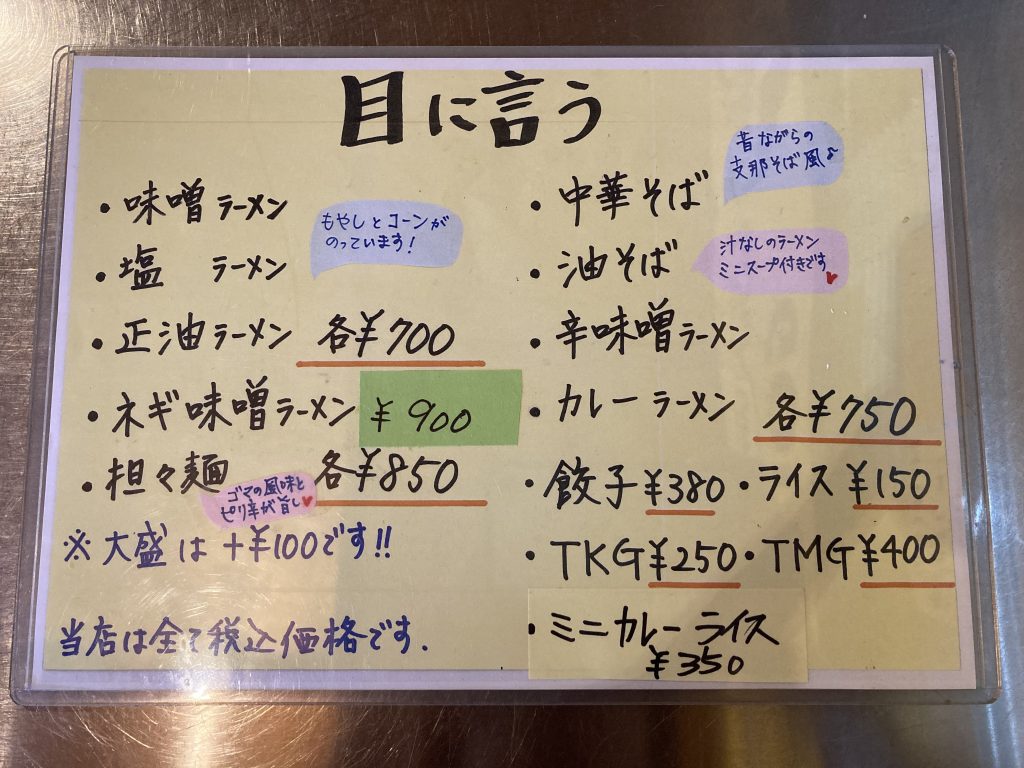 目に言う
・味噌ラーメン
もやしとコーンが
のっています!
・塩 ラーメン
・正油ラーメン 各¥700
・ネギ味噌ラーメン ¥900
・担々麺 各¥850
ゴマの風味と
ピリ辛が旨し♥
※大盛は+¥100です!!
当店は全て税込価格です.
・中華そば
昔ながらの
支那そば風♪
・油そば
汁なしのラーメン
ミニスープ付きです♥
・辛味噌ラーメン
・カレーラーメン 各¥750
・餃子¥380 ・ライス¥150
・TKG¥250 ・TMG¥400
・ミニカレーライス
¥350